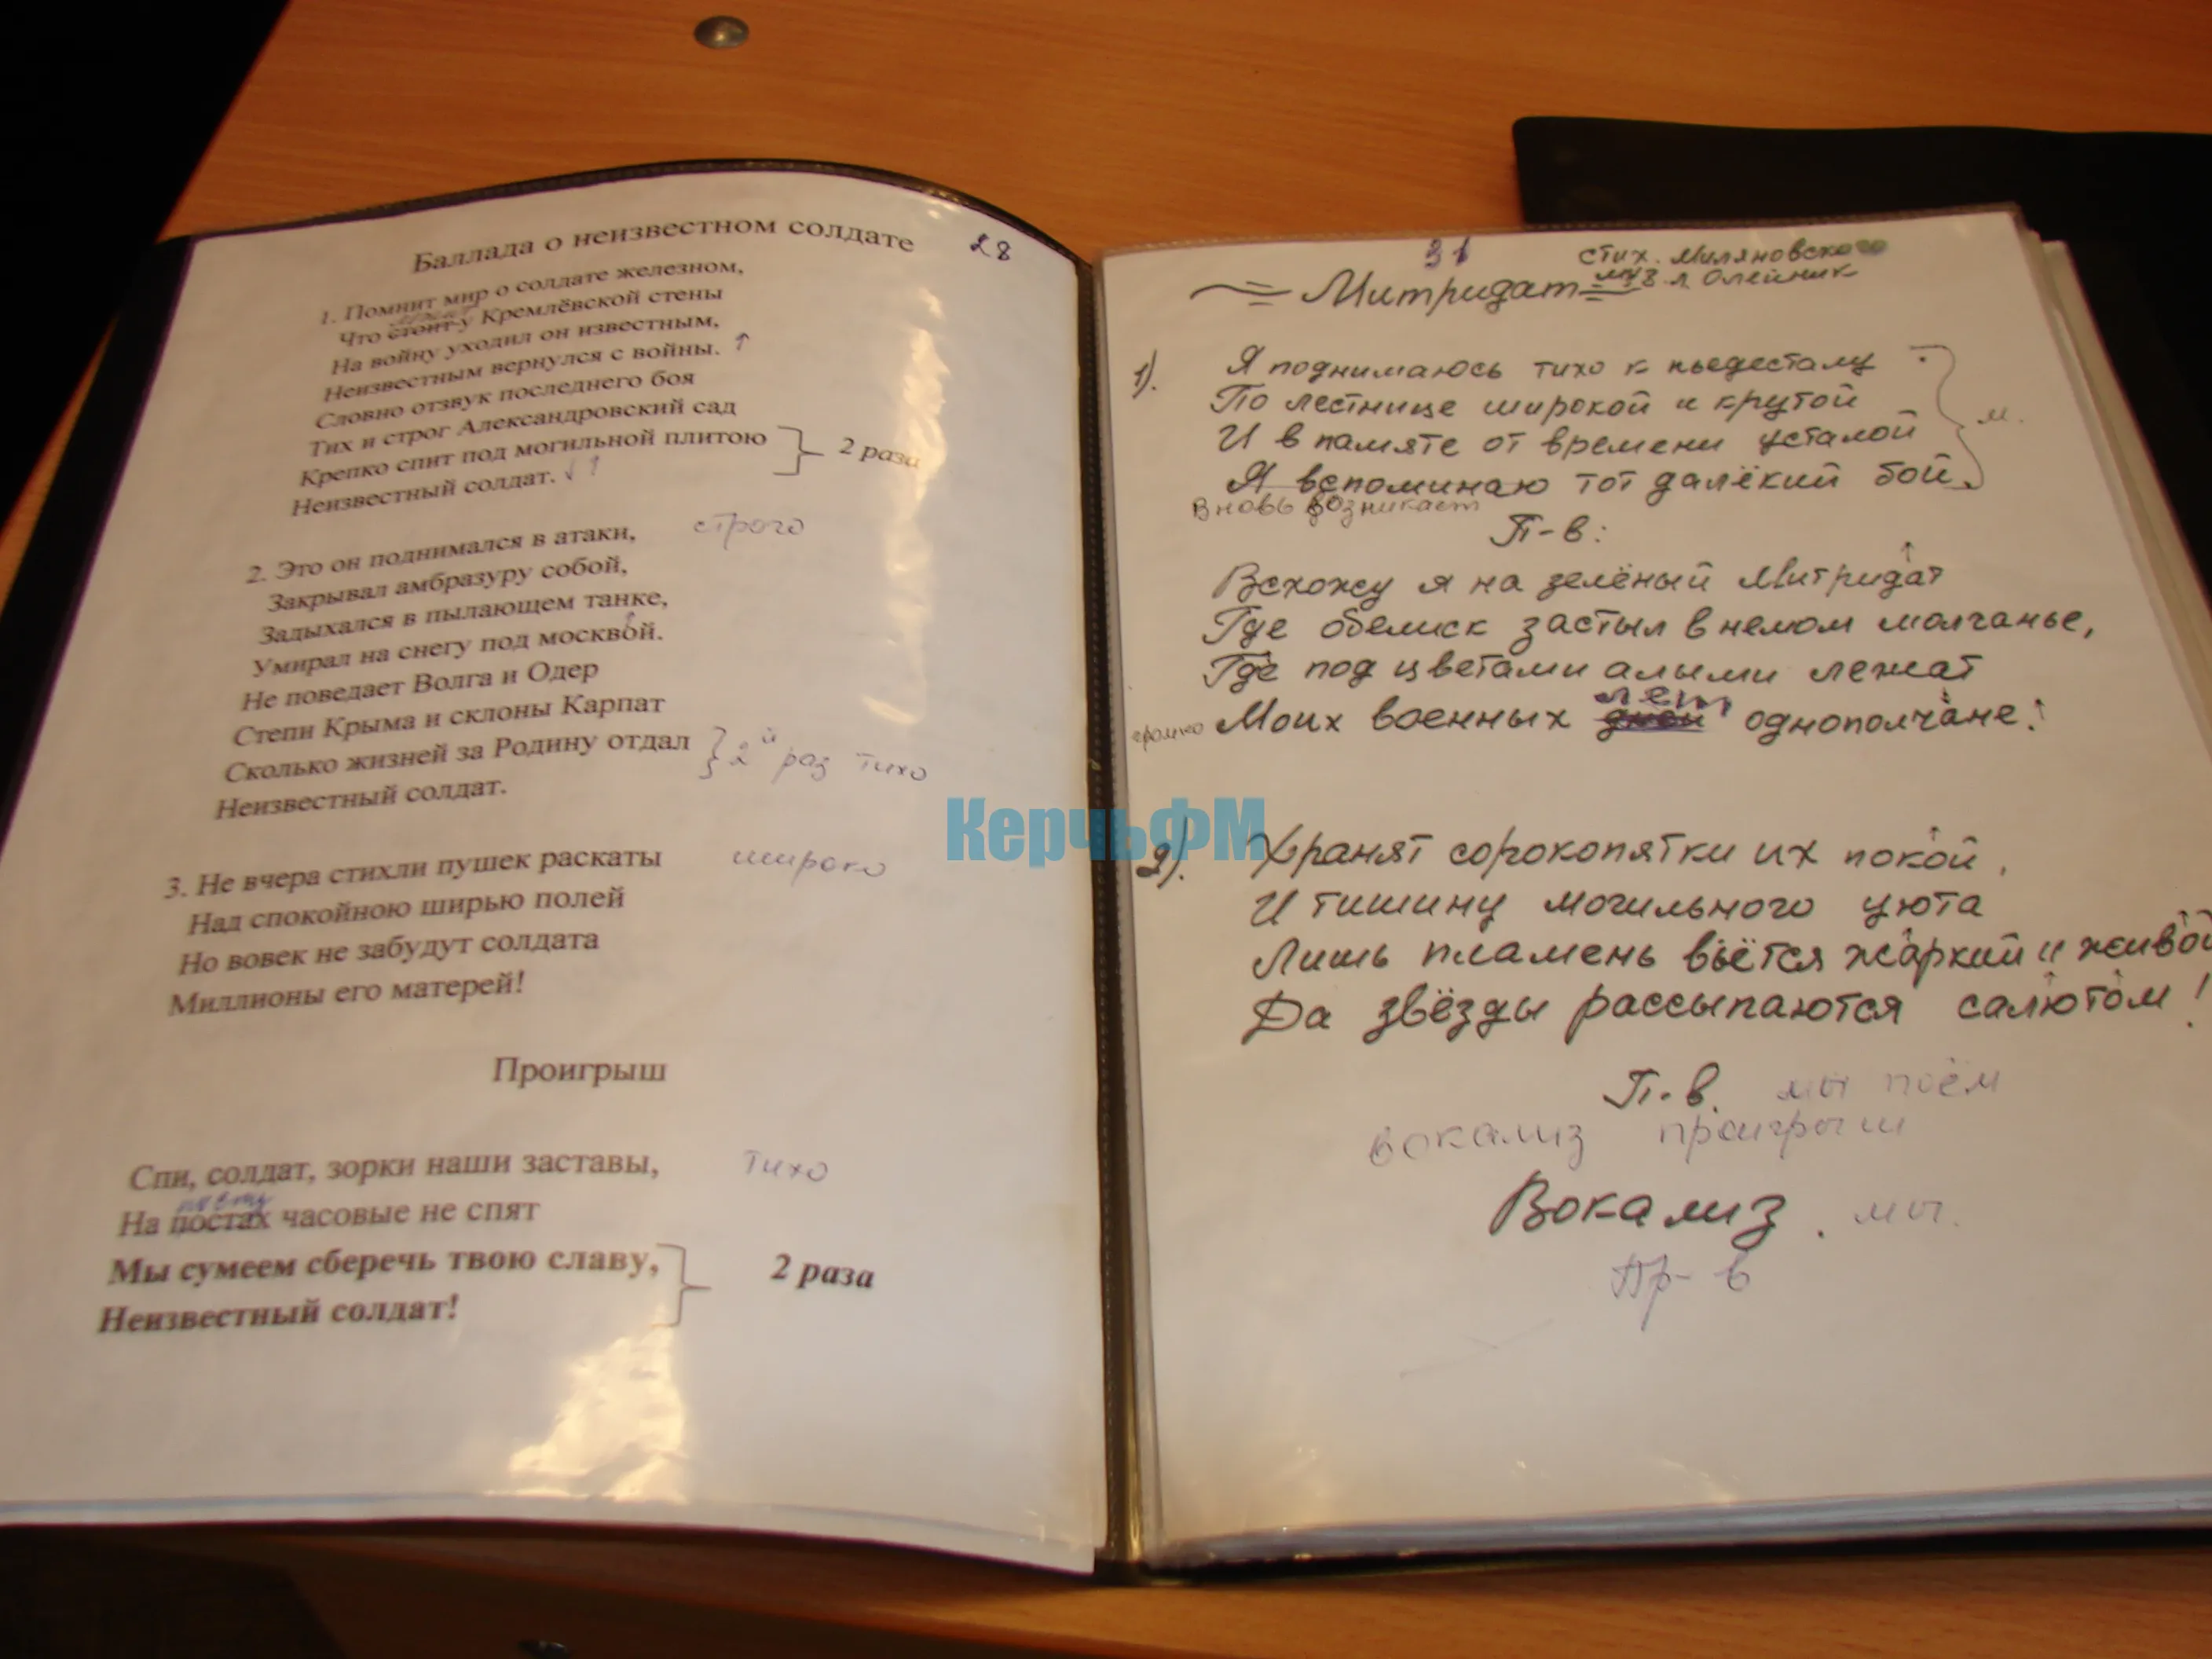 Баллада о неизвестном солдате
28
1. Помнит мир о солдате железном,
Что стоит у Кремлёвской стены
На войну уходил он известным,
Неизвестным вернулся с войны. ↑
Словно отзвук последнего боя
Тих и строг Александровский сад
Крепко спит под могильной плитою
2 раза
Неизвестный солдат.
2. Это он поднимался в атаки,
строго
Закрывал амбразуру собой,
Задыхался в пылающем танке,
Умирал на снегу под москвой.
Не поведает Волга и Одер
Степи Крыма и склоны Карпат
Сколько жизней за Родину отдал
2й раз тихо
Неизвестный солдат.
3. Не вчера стихли пушек раскаты
широко
Над спокойною ширью полей
Но вовек не забудут солдата
Миллионы его матерей!
Проигрыш
Спи, солдат, зорки наши заставы,
тихо
посту
На постах часовые не спят
Мы сумеем сберечь твою славу,
2 раза
Неизвестный солдат!
31
стих. Миляновского
муз Л. Олейник
Митридат
1).
Я поднимаюсь тихо к пьедесталу
По лестнице широкой и крутой
м.
И в памяте от времени усталой
Я вспоминаю тот далёкий бой
Вновь возникает
П-в:
Всхожу я на зелёный Митридат
Где обелиск застыл в немом молчанье,
Где под цветами алыми лежат
лет
громко Моих военных дней однополчане!
КерчьФМ
2).
Хранят сорокопятки их покой,
И тишину могильного уюта
Лишь пламень вьётся жаркий и живой
Да звёзды рассыпаются салютом!
П-в. мы поём
вокализ проигрыш
Вокализ. мы.
Пр-в